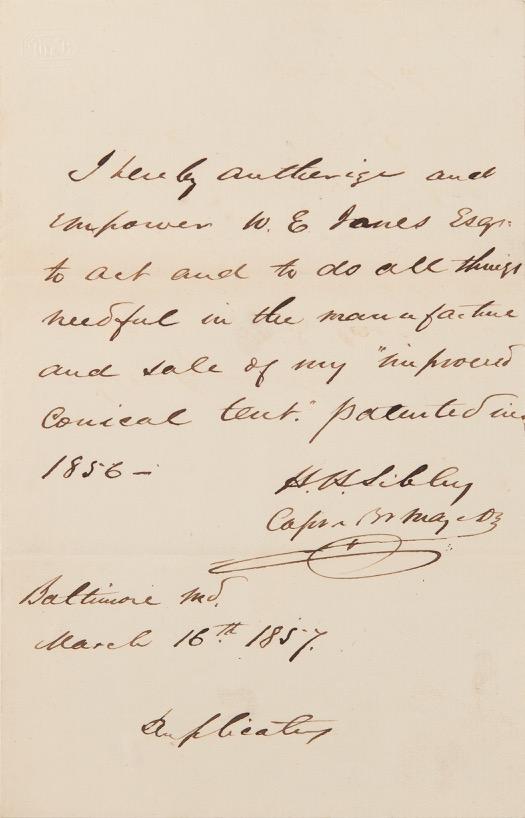 I hereby authorize and
empower W. E. Jones Esqr.
to act and to do all things
needful in the manufacture
and sale of my "improved
Conical tent." patented in
1856 –
H. H. Sibley
Capn & Br Maj
Baltimore Md.
March 16th 1857.
Duplicate